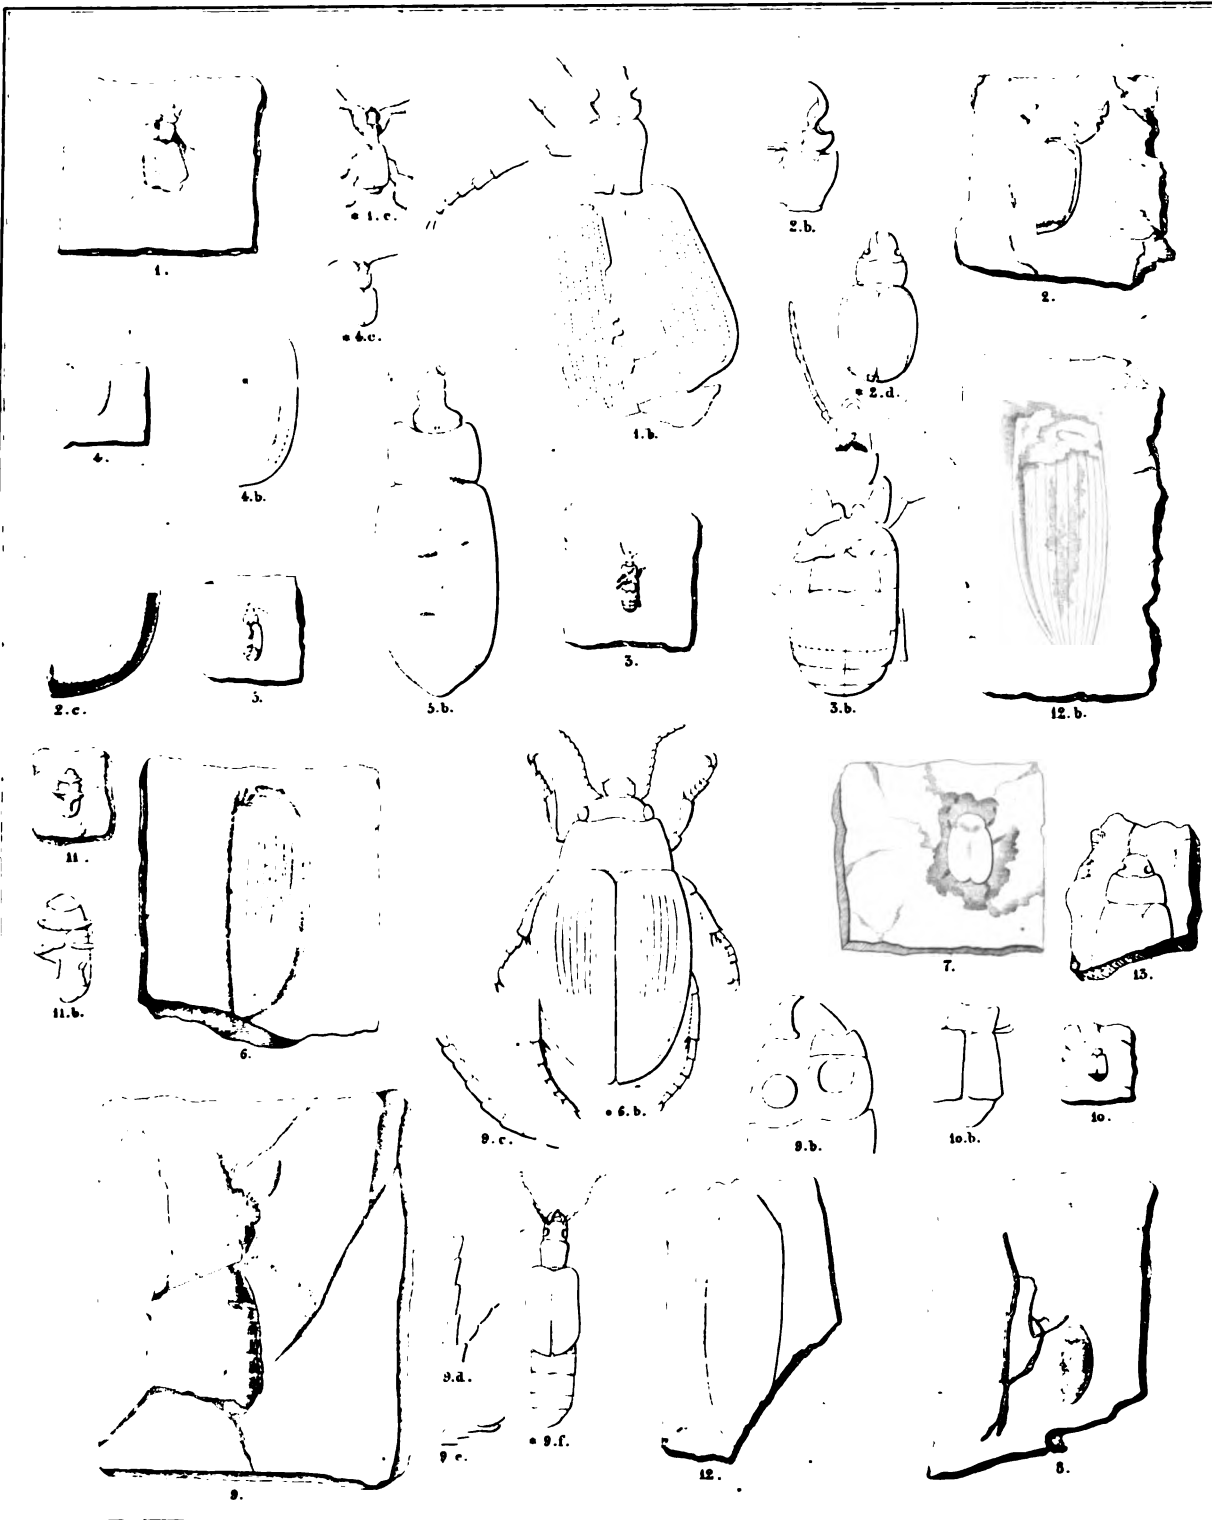 1.
* 1.c.
2.b.
2.
* 4.c.
* 2.d.
4.
4.b.
1.b.
2.c.
5.
5.b.
3.
3.b.
12.b.
11.
11.b.
6.
* 6.b.
7.
13.
9.c.
9.b.
10.b.
10.
9.d.
9 e.
* 9.f.
9.
12.
8.